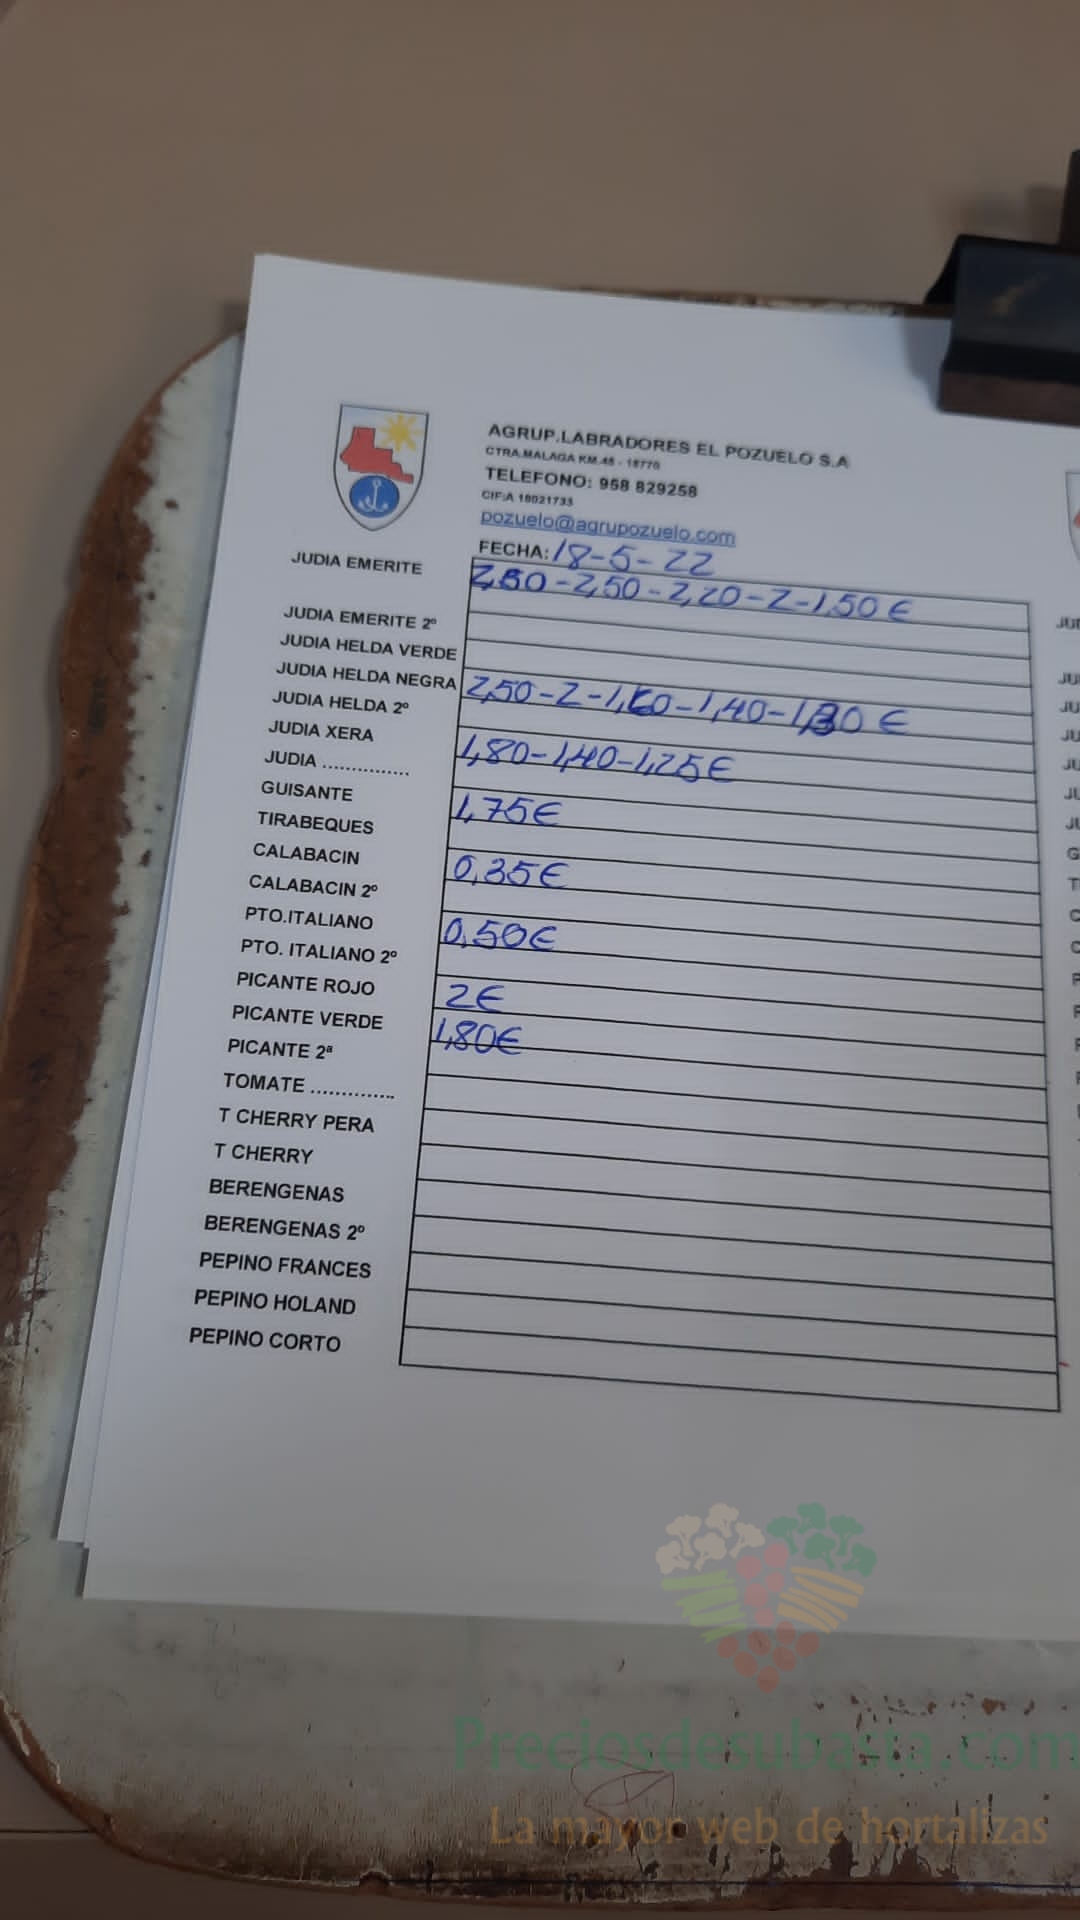 AGRUP.LABRADORES EL POZUELO S.A
CTRA.MALAGA KM.45 - 18770
TELEFONO: 958 829258
CIF:A 18021733
pozuelo@agrupozuelo.com
FECHA: 18-5-22
JUDIA EMERITE 2,80-2,50-2,20-2-1,50€
JUDIA EMERITE 2º
JUDIA HELDA VERDE
JUDIA HELDA NEGRA 2,50-2-1,60-1,40-1,30€
JUDIA HELDA 2º
JUDIA XERA 1,80-1,40-1,25€
JUDIA ..............
GUISANTE 1,75€
TIRABEQUES
CALABACIN 0,35€
CALABACIN 2º
PTO.ITALIANO 0,50€
PTO. ITALIANO 2º
PICANTE ROJO 2€
PICANTE VERDE 1,80€
PICANTE 2ª
TOMATE .............
T CHERRY PERA
T CHERRY
BERENGENAS
BERENGENAS 2º
PEPINO FRANCES
PEPINO HOLAND
PEPINO CORTO
Preciosdesubasta.com
La mayor web de hortalizas